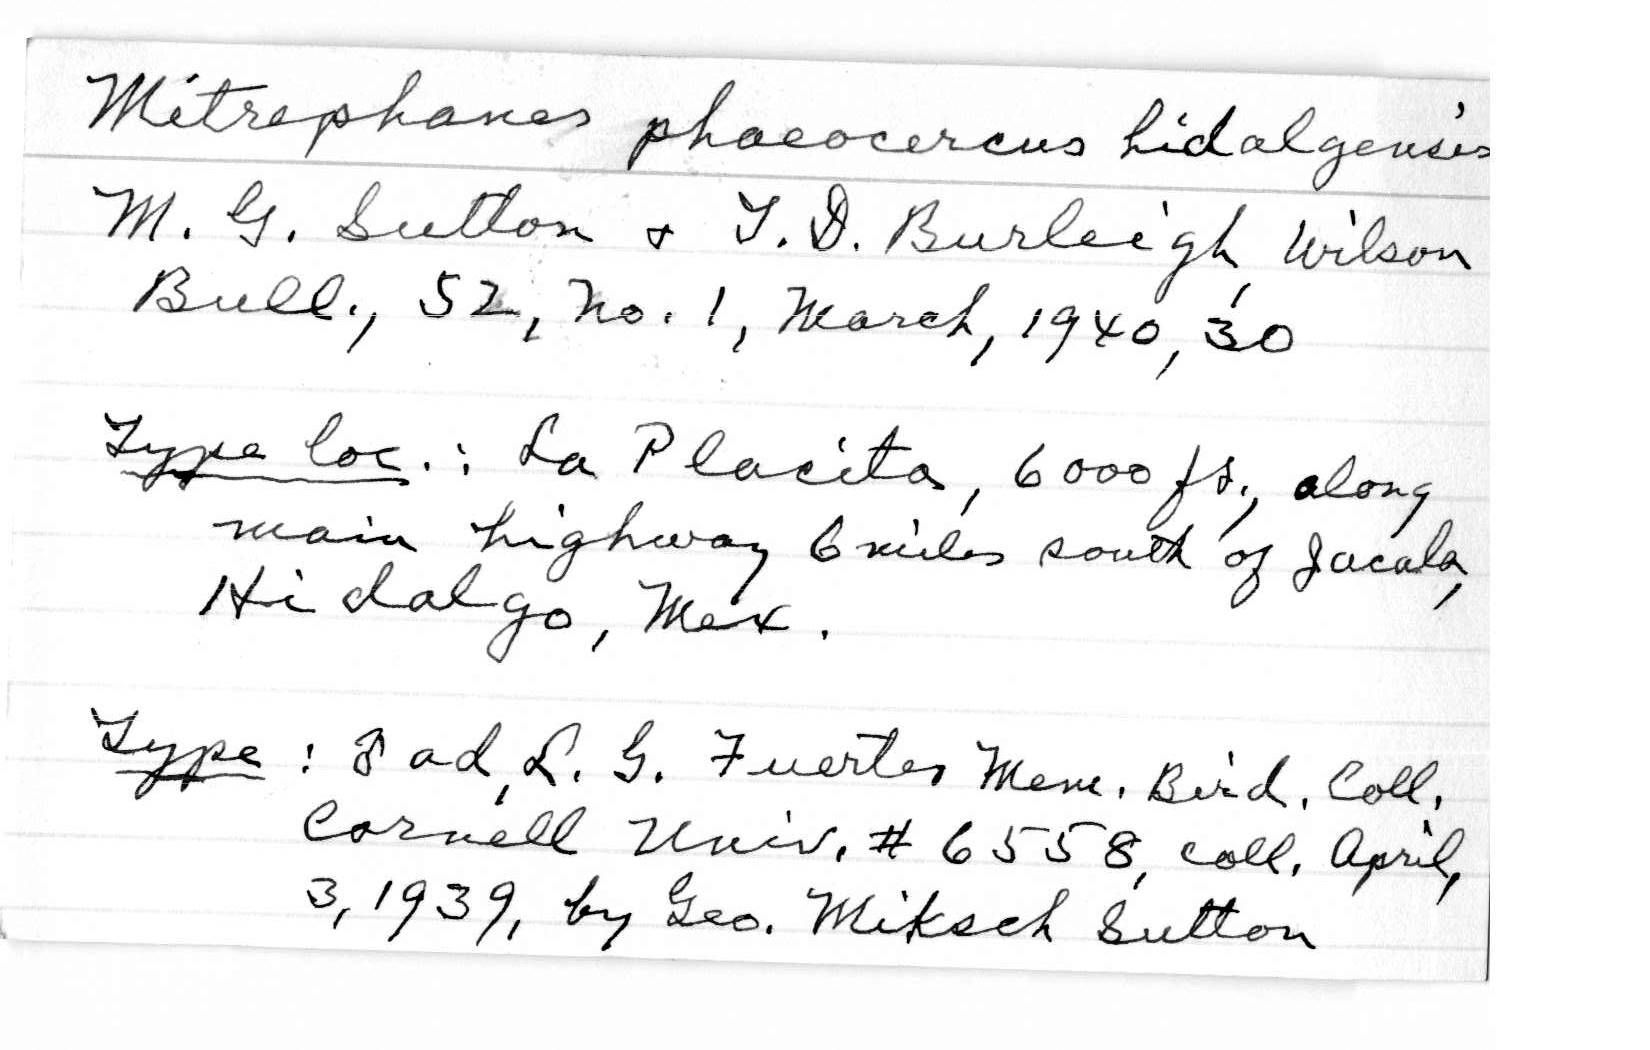 Mitrephanes phaeocercus hidalgensis
M. G. Sutton & T. D. Burleigh, Wilson
Bull., 52, No. 1, March, 1940, 30
Type loc.: La Placita, 6000 ft., along
main highway 6 miles south of Jacala,
Hidalgo, Mex.
Type: ♂ ad, L. G. Fuertes Mem. Bird. Coll.
Cornell Univ. # 6558, coll. April,
3, 1939, by Geo. Miksch Sutton